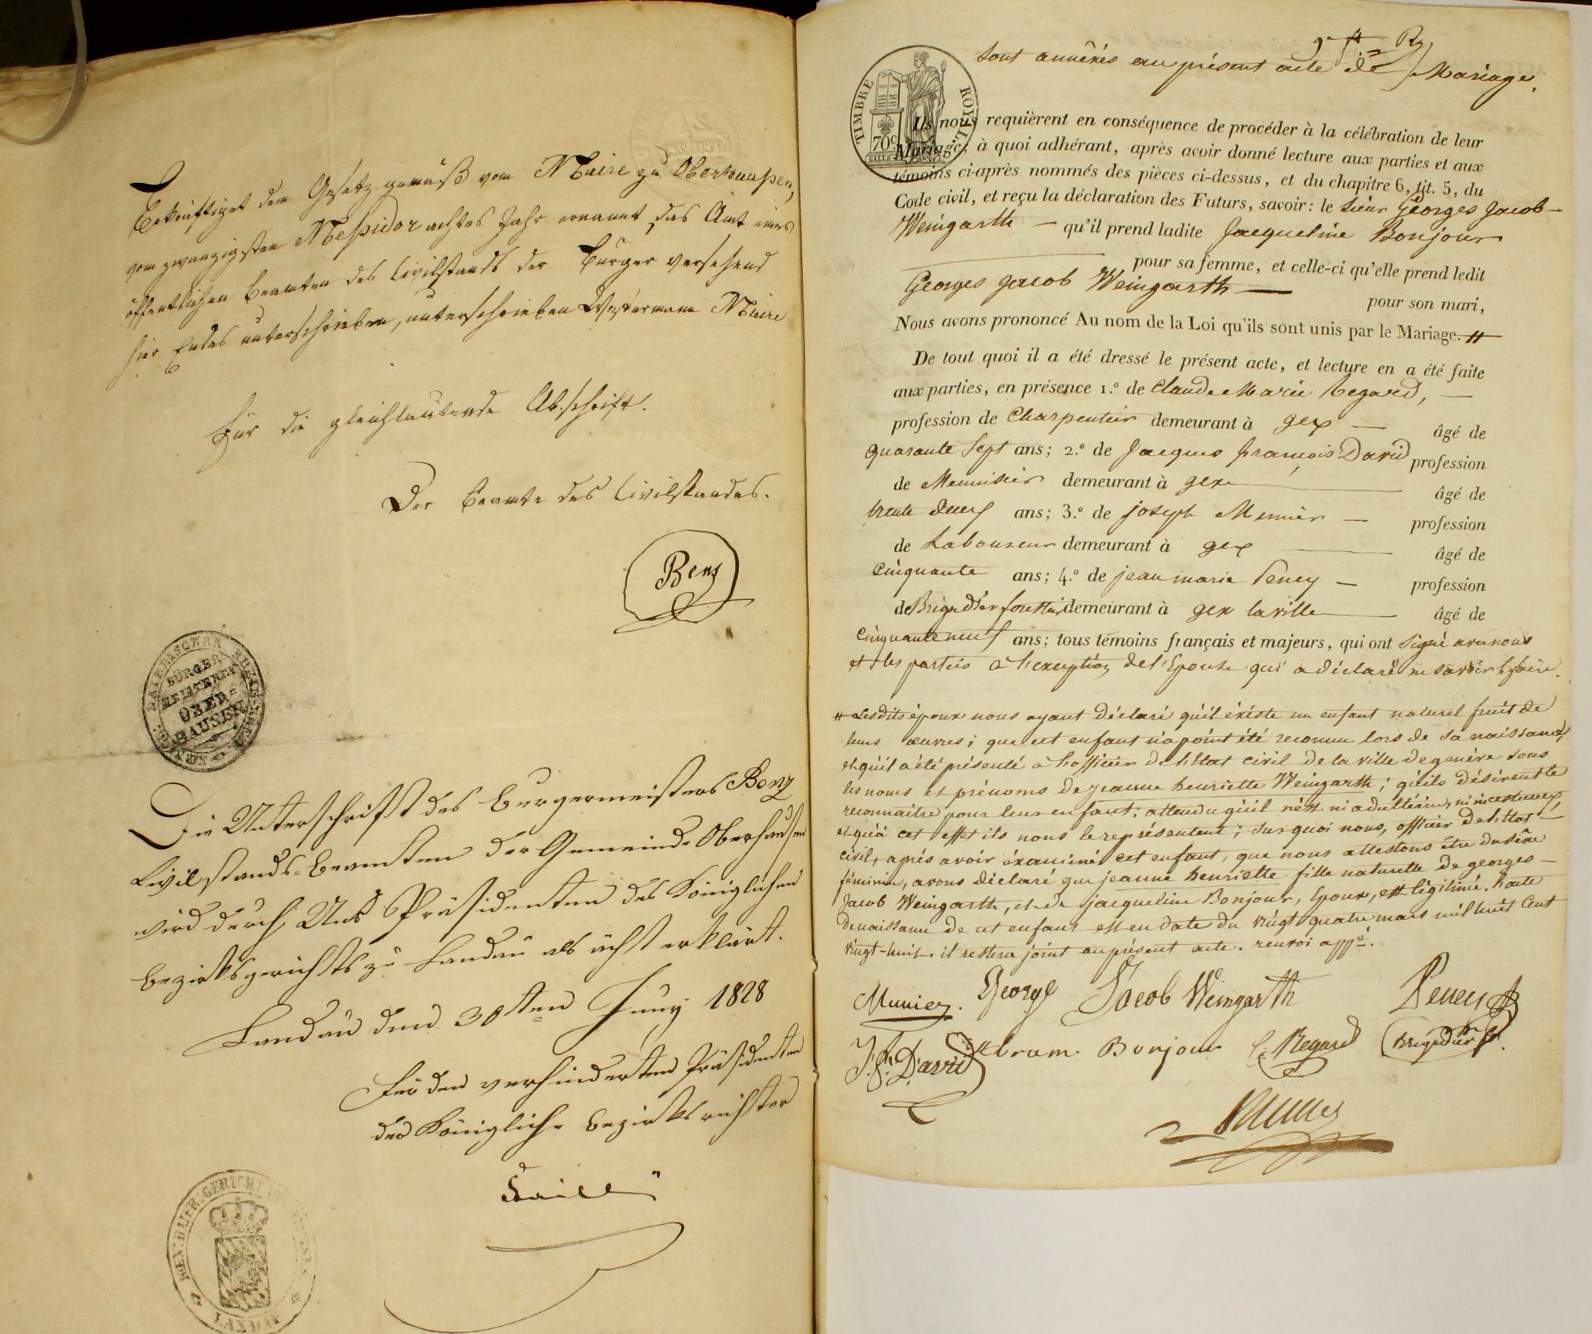 Bekräftiget dem Gesetz gemäß vom Maire zu Oberhausen,
vom zwanzigsten Messidor achtes Jahr ernannt das Amt eines
öffentlichen Beamten des Civilstands der Bürger versehend
hier Endes unterschrieben, unterschrieben Westermann Maire
Für die gleichlautende Abschrift.
Der Beamte des Civilstandes.
Benz
BÜRGER-
MEISTEREY
OBER=
HAUSEN
Die Unterschrift des Burgermeisters Benz
Civilstands-Beamten der Gemeinde Oberhausen
wird durch Uns Präsidenten des Königlichen
Bezirksgerichts zu Landau als ächt erklärt.
Landau den 30ten Juny 1828
Für den verhinderten Präsidenten
der Königliche Bezirksrichter
LANDAU
sont annéxés au présent acte de Mariage.
TIMBRE ROYAL
70c
Ils nous requièrent en conséquence de procéder à la célébration de leur
Mariage; à quoi adhérant, après avoir donné lecture aux parties et aux
témoins ci-après nommés des pièces ci-dessus, et du chapitre 6, tit. 5, du
Code civil, et reçu la déclaration des Futurs, savoir: le Sieur Georges Jacob
Weingarth qu'il prend ladite Jacqueline Bonjour
pour sa femme, et celle-ci qu'elle prend ledit
Georges Jacob Weingarth pour son mari,
Nous avons prononcé Au nom de la Loi qu'ils sont unis par le Mariage. #
De tout quoi il a été dressé le présent acte, et lecture en a été faite
aux parties, en présence 1.º de Claude Marie Regard,
profession de Charpentier demeurant à gex âgé de
quarante Sept ans; 2.º de Jacques françois David profession
de Menuisier demeurant à gex âgé de
trente deux ans; 3.º de joseph Munier profession
de Laboureur demeurant à gex âgé de
Cinquante ans; 4.º de jean marie Peney profession
de Brigadier forestier demeurant à gex la ville âgé de
Cinquante neuf ans; tous témoins français et majeurs, qui ont signé avec nous
et les parties à l'exception de l'Epouse qui a déclaré ne savoir le faire.
# Lesdits époux nous ayant déclaré qu'il éxiste un enfant naturel fruit de
leurs œuvres; que cet enfant n'a point été reconnu lors de sa naissance,
et qu'il a été présenté à l'officier de l'Etat civil de la ville de genève sous
les noms et prénoms de jeanne henriette Weingarth; qu'ils désirent le
reconnaitre pour leur enfant; attendu qu'il n'est ni adultérin, ni incestueux,
et qu'à cet effet ils nous le représentent; Sur quoi nous, officier de l'Etat
civil, après avoir éxaminé cet enfant, que nous attestons être du sexe
féminin, avons déclaré que jeanne henriette fille naturelle de georges
Jacob Weingarth, et de jacqueline Bonjour, Epoux, est légitimé. l'acte
de naissance de cet enfant est en date du vingt quatre mars mil huit Cent
vingt-huit. il restera joint au présent acte. renvoi appé.
Munier. George Jacob Weingarth Peney
J. f. David Abram Bonjour C. Regard brigadier f.